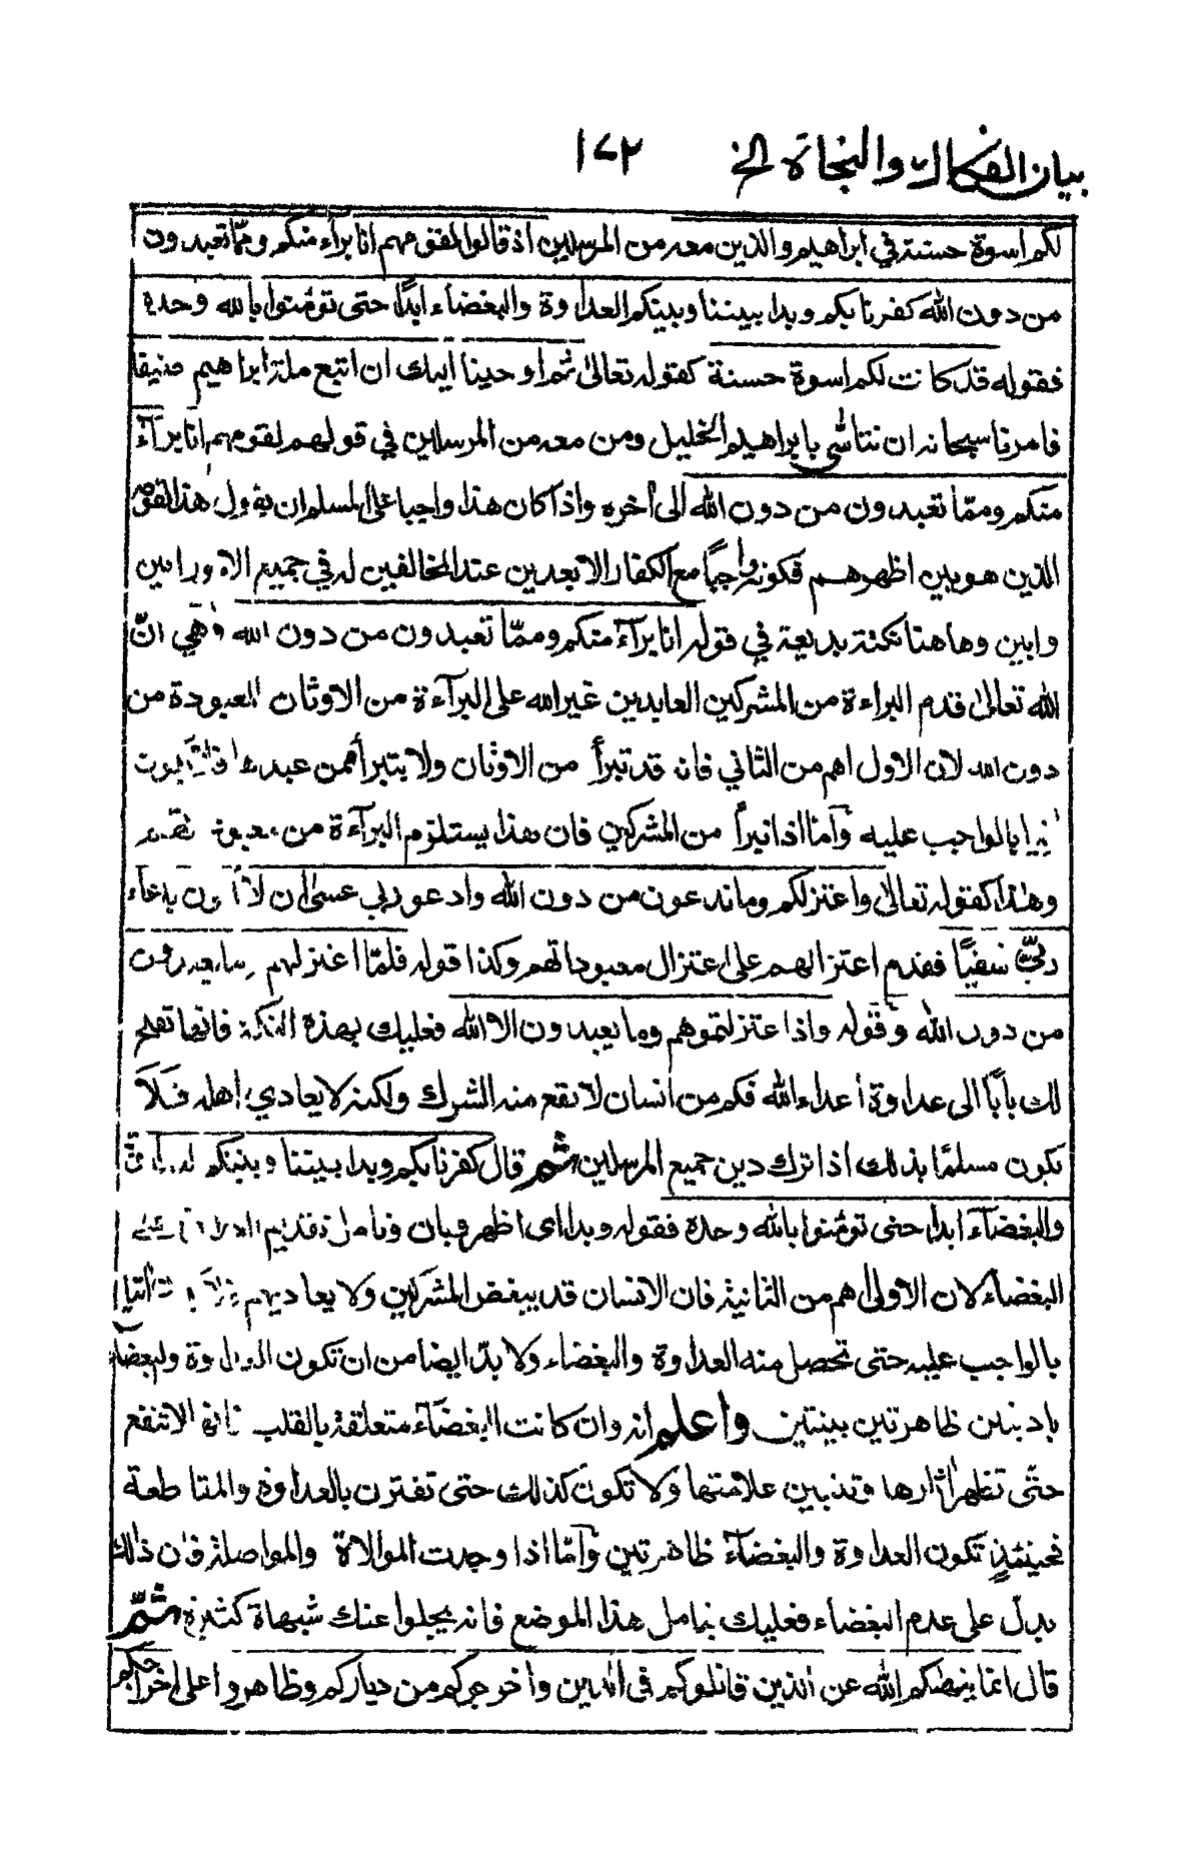 بيان الفكاك والنجاة الخ ١٧٢
لكم اسوة حسنة في ابراهيم والذين معه من المرسلين اذ قالوا لقومهم انا برآء منكم ومما تعبدون
من دون الله كفرنا بكم وبدا بيننا وبينكم العداوة والبغضاء ابدًا حتى تؤمنوا بالله وحده
فقوله قد كانت لكم اسوة حسنة كقوله تعالى ثم اوحينا اليك ان اتبع ملة ابراهيم حنيفا
فامرنا سبحانه ان نتأسى بابراهيم الخليل ومن معه من المرسلين في قولهم لقومهم انا برآء
منكم ومما تعبدون من دون الله الى أخره واذا كان هذا واجبا على المسلم ان يقول هذا لقومه
الذين هو بين اظهرهم فكونه واجبًا مع الكفار الابعدين عنه المخالفين له في جميع الامور ابين
وابين وهاهنا نكتة بديعة في قوله انا برآء منكم ومما تعبدون من دون الله وهي انّ
الله تعالى قدم البراءة من المشركين العابدين غير الله على البرآءة من الاوثان المعبودة من
دون الله لان الاول اهم من الثاني فانه قد تبرأ من الاوثان ولا يتبرأ ممن عبدها فلا يكون
بالواجب عليه وأما اذا تبرأ من المشركين فان هذا يستلزم البرآءة من
وهذا كقوله تعالى واعتزلكم وما تدعون من دون الله وادعو ربي عسى ان لا اكون بدعاء
ربّي شقيًا فقدم اعتزالهم على اعتزال معبوداتهم وكذا قوله فلمّا اعتزلهم وما يعبدون
من دون الله وقوله واذا عتزلتموهم وما يعبدون الا الله فعليك بهذه النكتة فانها تفتح
لك بابًا الى عداوة أعداء الله فكم من انسان لا يقع منه الشرك ولكنه لا يعادي اهله فلا
يكون مسلمًا بذلك اذا ترك دين جميع المرسلين ثم قال كفرنا بكم وبدا بيننا وبينكم العداوة
والبغضآء ابدا حتى تؤمنوا بالله وحده فقوله وبدا اى اظهر وبان وتأمل تقديم العداوة على
البغضاء لان الاولى اهم من الثانية فان الانسان قد يبغض المشركين ولا يعاديهم فلا
بالواجب عليه حتى تحصل منه العداوة والبغضاء ولا بدّ ايضا من ان تكون العداوة والبغضآء
باديتين ظاهرتين بينتين واعلم انه وان كانت البغضآء متعلقة بالقلب فانها لا تنفع
حتّى تظهر اثارها وتتبين علامتها ولا تكون كذلك حتى تقترن بالعداوة والمقاطعة
فحينئذٍ تكون العداوة والبغضآء ظاهرتين وأمّا اذا وجدت الموالاة والمواصلة فان ذلك
يدلّ على عدم البغضاء فعليك بتامل هذا الموضع فانه يجلوا عنك شبهاة كثيرة ثمّ
قال انما ينهاكم الله عن الذين قاتلوكم فى الدين واخرجوكم من دياركم وظاهروا على اخراجكم